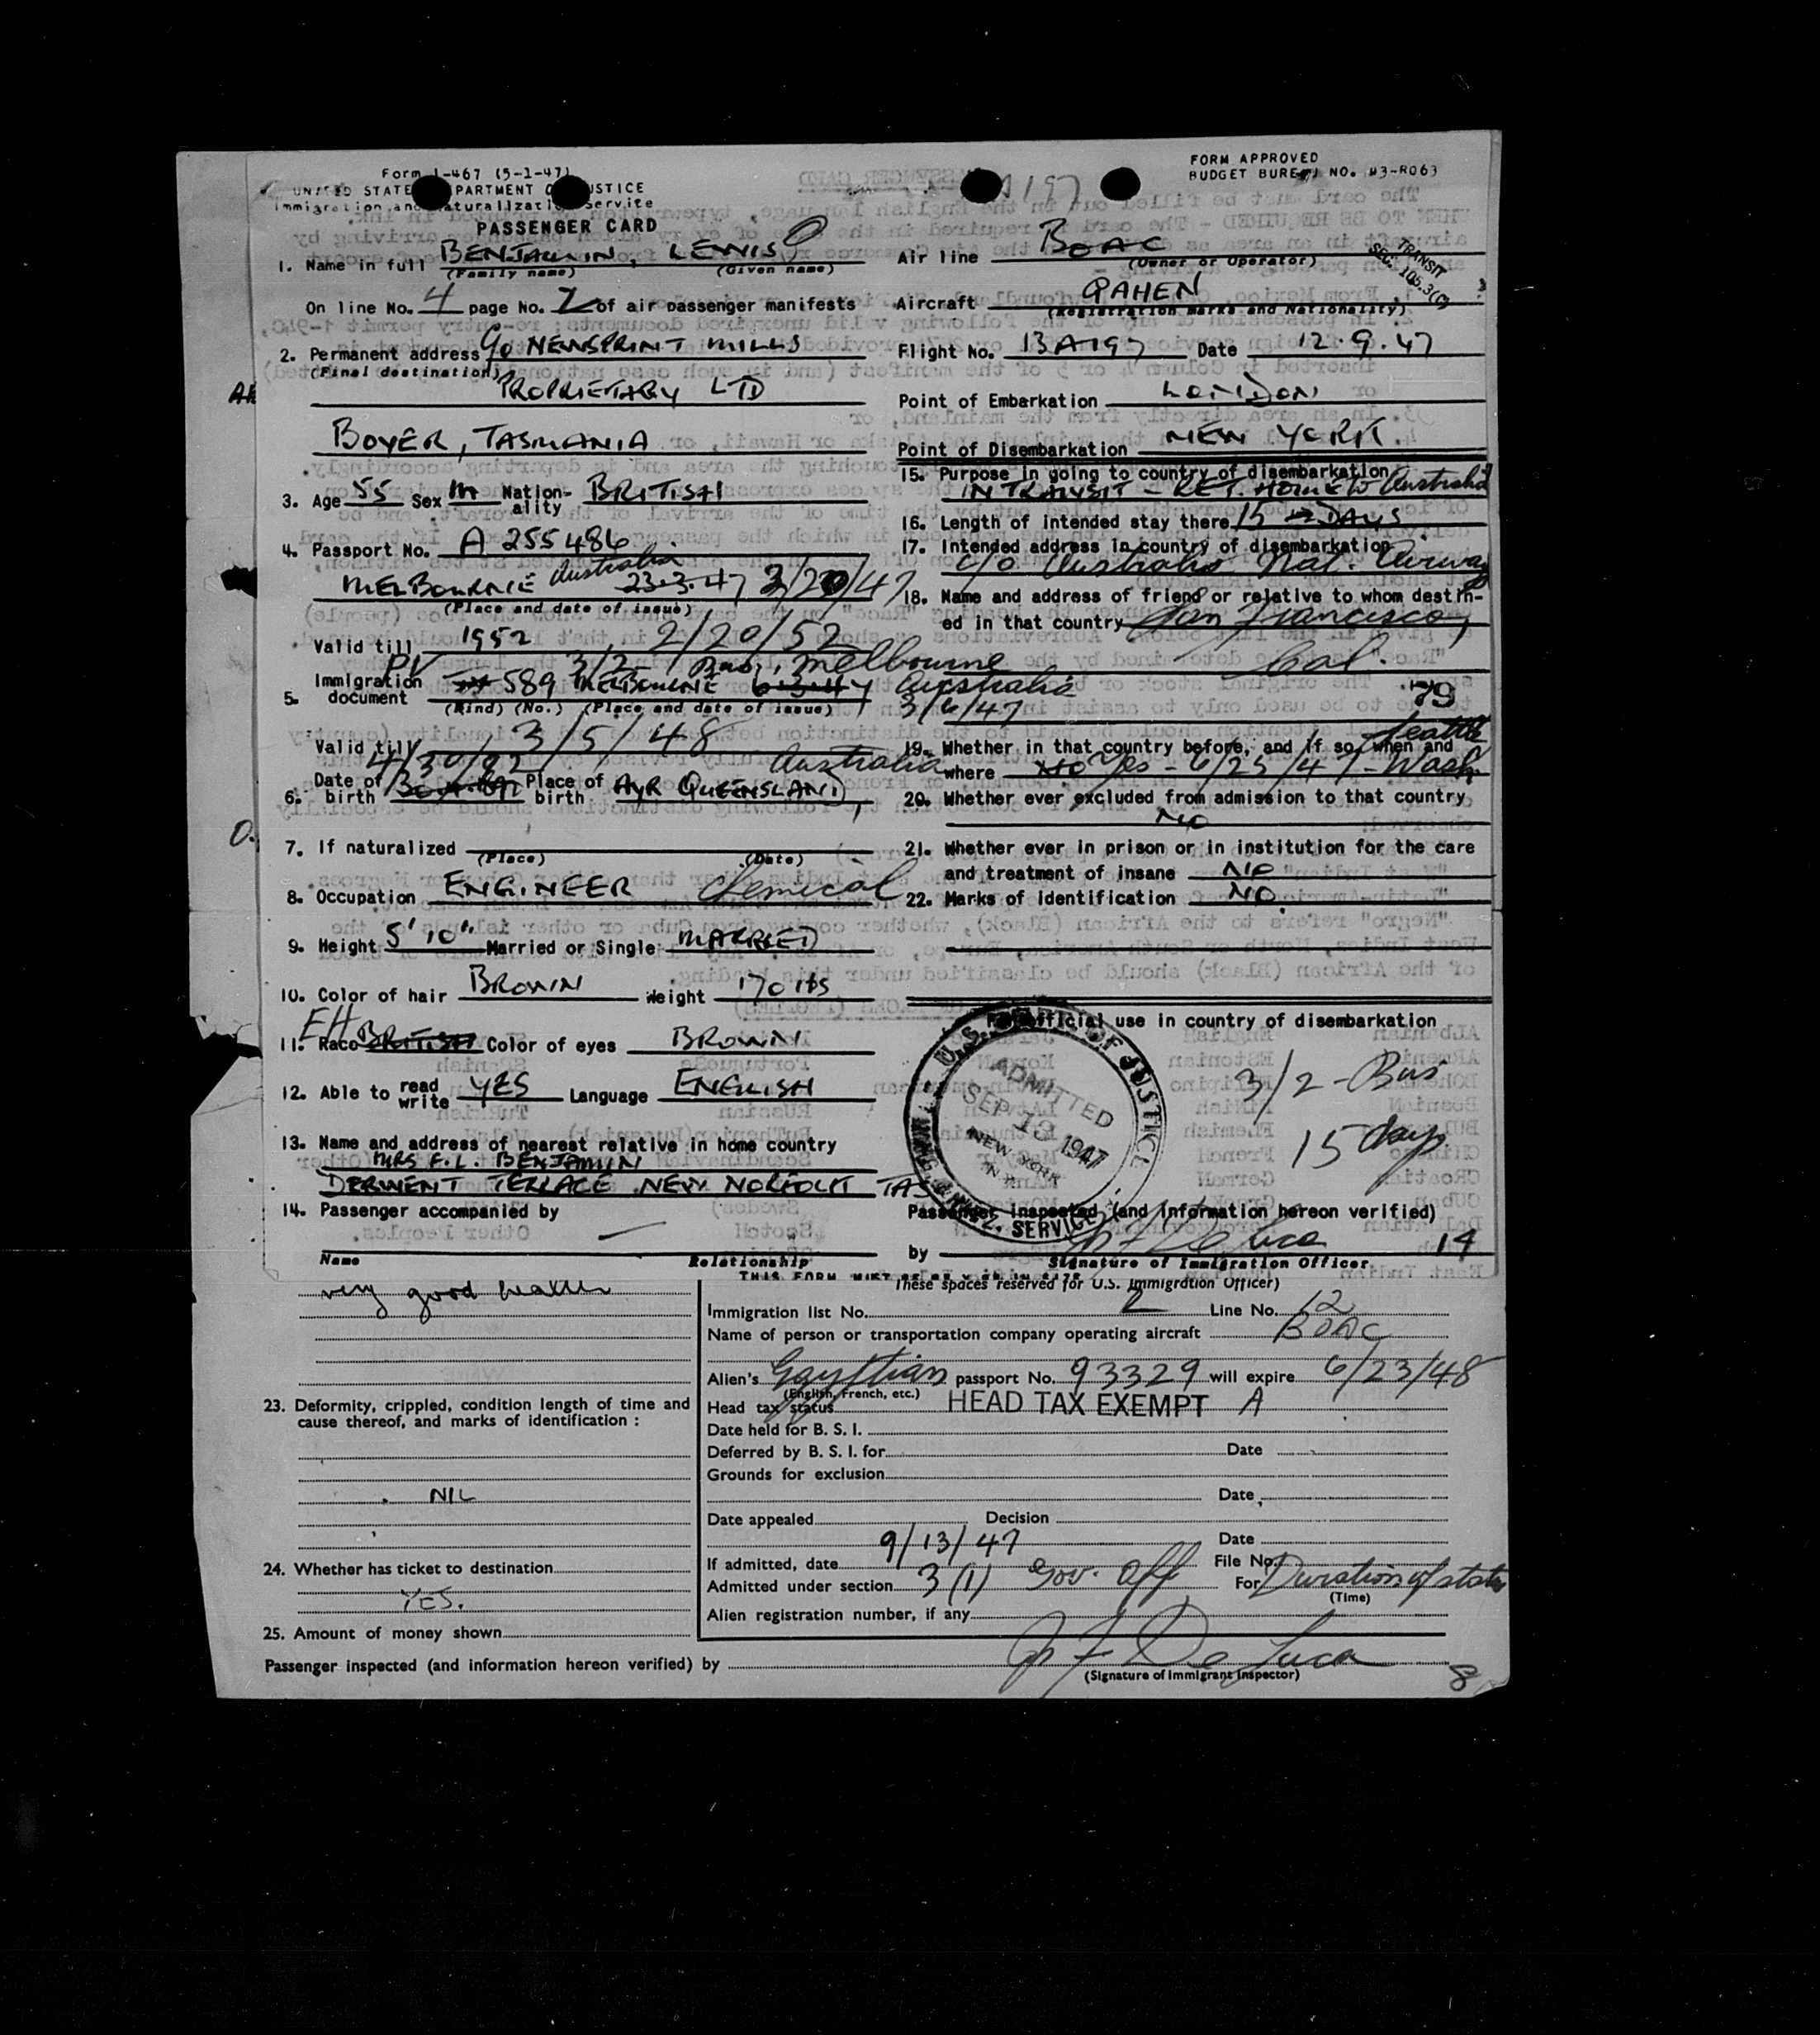 Form I-467 (5-1-47)
UNITED STATES DEPARTMENT OF JUSTICE
Immigration and Naturalization Service
PASSENGER CARD
FORM APPROVED
BUDGET BUREAU NO. 43-R063
A197
TRANSIT
SEC. 105.3(C)
1. Name in full BENJAMIN, LEWIS O
(Family name) (Given name)
On line No. 4 page No. 2 of air passenger manifests
2. Permanent address C/o NEWSPRINT MILLS
(Final destination)
PROPRIETARY LTD
BOYER, TASMANIA
3. Age 55 Sex M Nation-ality BRITISH
4. Passport No. A 255486
MELBOURNE Australia 23.3.47 3/20/47
(Place and date of issue)
Valid till 1952 2/20/52
PV 3/2 Bus, Melbourne
5. Immigration document 589 MELBOURNE 6.3.47 Australia
(Kind) (No.) (Place and date of issue) 3/6/47
Valid till 3/5/48
4/30/92 Australia
6. Date of birth Place of birth AYR QUEENSLAND
7. If naturalized
(Place) (Date)
8. Occupation ENGINEER Chemical
9. Height 5' 10" Married or Single MARRIED
10. Color of hair BROWN Weight 170 lbs
EH
11. Race BRITISH Color of eyes BROWN
12. Able to read write YES Language ENGLISH
13. Name and address of nearest relative in home country
MRS F.L. BENJAMIN
DERWENT TERRACE NEW NORFOLK TAS
14. Passenger accompanied by
Name Relationship
Air line BOAC
(Owner or Operator)
Aircraft GAHEN
(Registration marks and Nationality)
Flight No. BA197 Date 12.9.47
Point of Embarkation LONDON
Point of Disembarkation NEW YORK.
15. Purpose in going to country of disembarkation
IN TRANSIT - RET. HOME to Australia
16. Length of intended stay there 15 DAYS
17. Intended address in country of disembarkation
c/o Australia Nat. Airway
18. Name and address of friend or relative to whom destin-
ed in that country San Francisco,
Cal.
79
Seattle
19. Whether in that country before, and if so, when and
where No Yes - 6/25/47 - Wash
20. Whether ever excluded from admission to that country
NO
21. Whether ever in prison or in institution for the care
and treatment of insane NO
22. Marks of identification NO.
For official use in country of disembarkation
U.S. DEPT. OF JUSTICE
ADMITTED
SEP 13 1947
NEW YORK
SERVICE
3/2 - Bus
15 days
Passenger inspected (and information hereon verified)
by 14
Signature of Immigration Officer
very good health
23. Deformity, crippled, condition length of time and
cause thereof, and marks of identification :
NIL
24. Whether has ticket to destination
YES.
25. Amount of money shown
These spaces reserved for U.S. Immigration Officer)
Immigration list No. 2 Line No. 12
Name of person or transportation company operating aircraft BOAC
Alien's passport No. 93329 will expire 6/23/48
(English, French, etc.)
Head tax status HEAD TAX EXEMPT A
Date held for B. S. I.
Deferred by B. S. I. for Date
Grounds for exclusion
Date
Date appealed Decision
Date
If admitted, date 9/13/47 File No.
Admitted under section 3(1) Gov. Off For Duration of status
(Time)
Alien registration number, if any
Passenger inspected (and information hereon verified) by De Luca
(Signature of Immigrant Inspector)
8